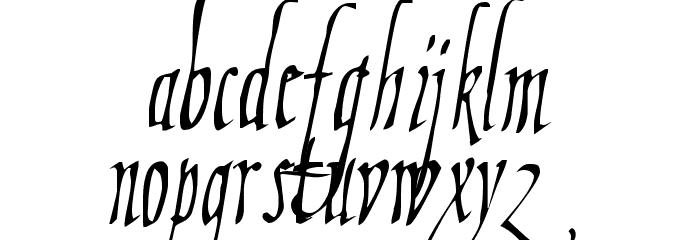 abcdefghijklm
nopqrstuvwxyz,